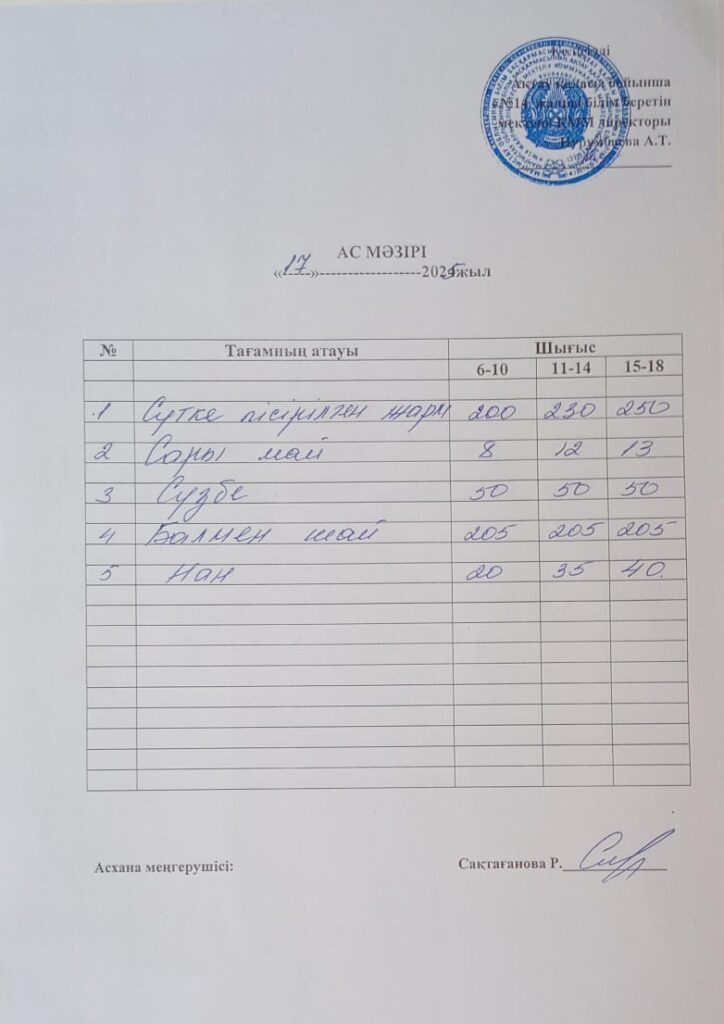 Келісілді
Ақтау қаласы бойынша
«№14 жалпы білім беретін
мектебі» КММ директоры
А.Т.
АС МӘЗІРІ
«--17--»-------------------2025жыл
№ Тағамның атауы Шығыс
6-10 11-14 15-18
1 Сүтке пісірілген жарм 200 230 250
2 Сары май 8 12 13
3 Сүзбе 50 50 50
4 Балмен шай 205 205 205
5 Нан 20 35 40.
Асхана меңгерушісі: Сақтағанова Р.